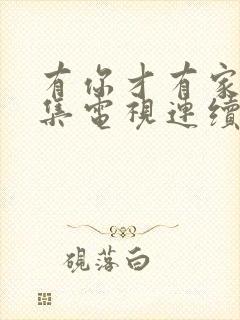 有你才有家
集電視連續
硯落白